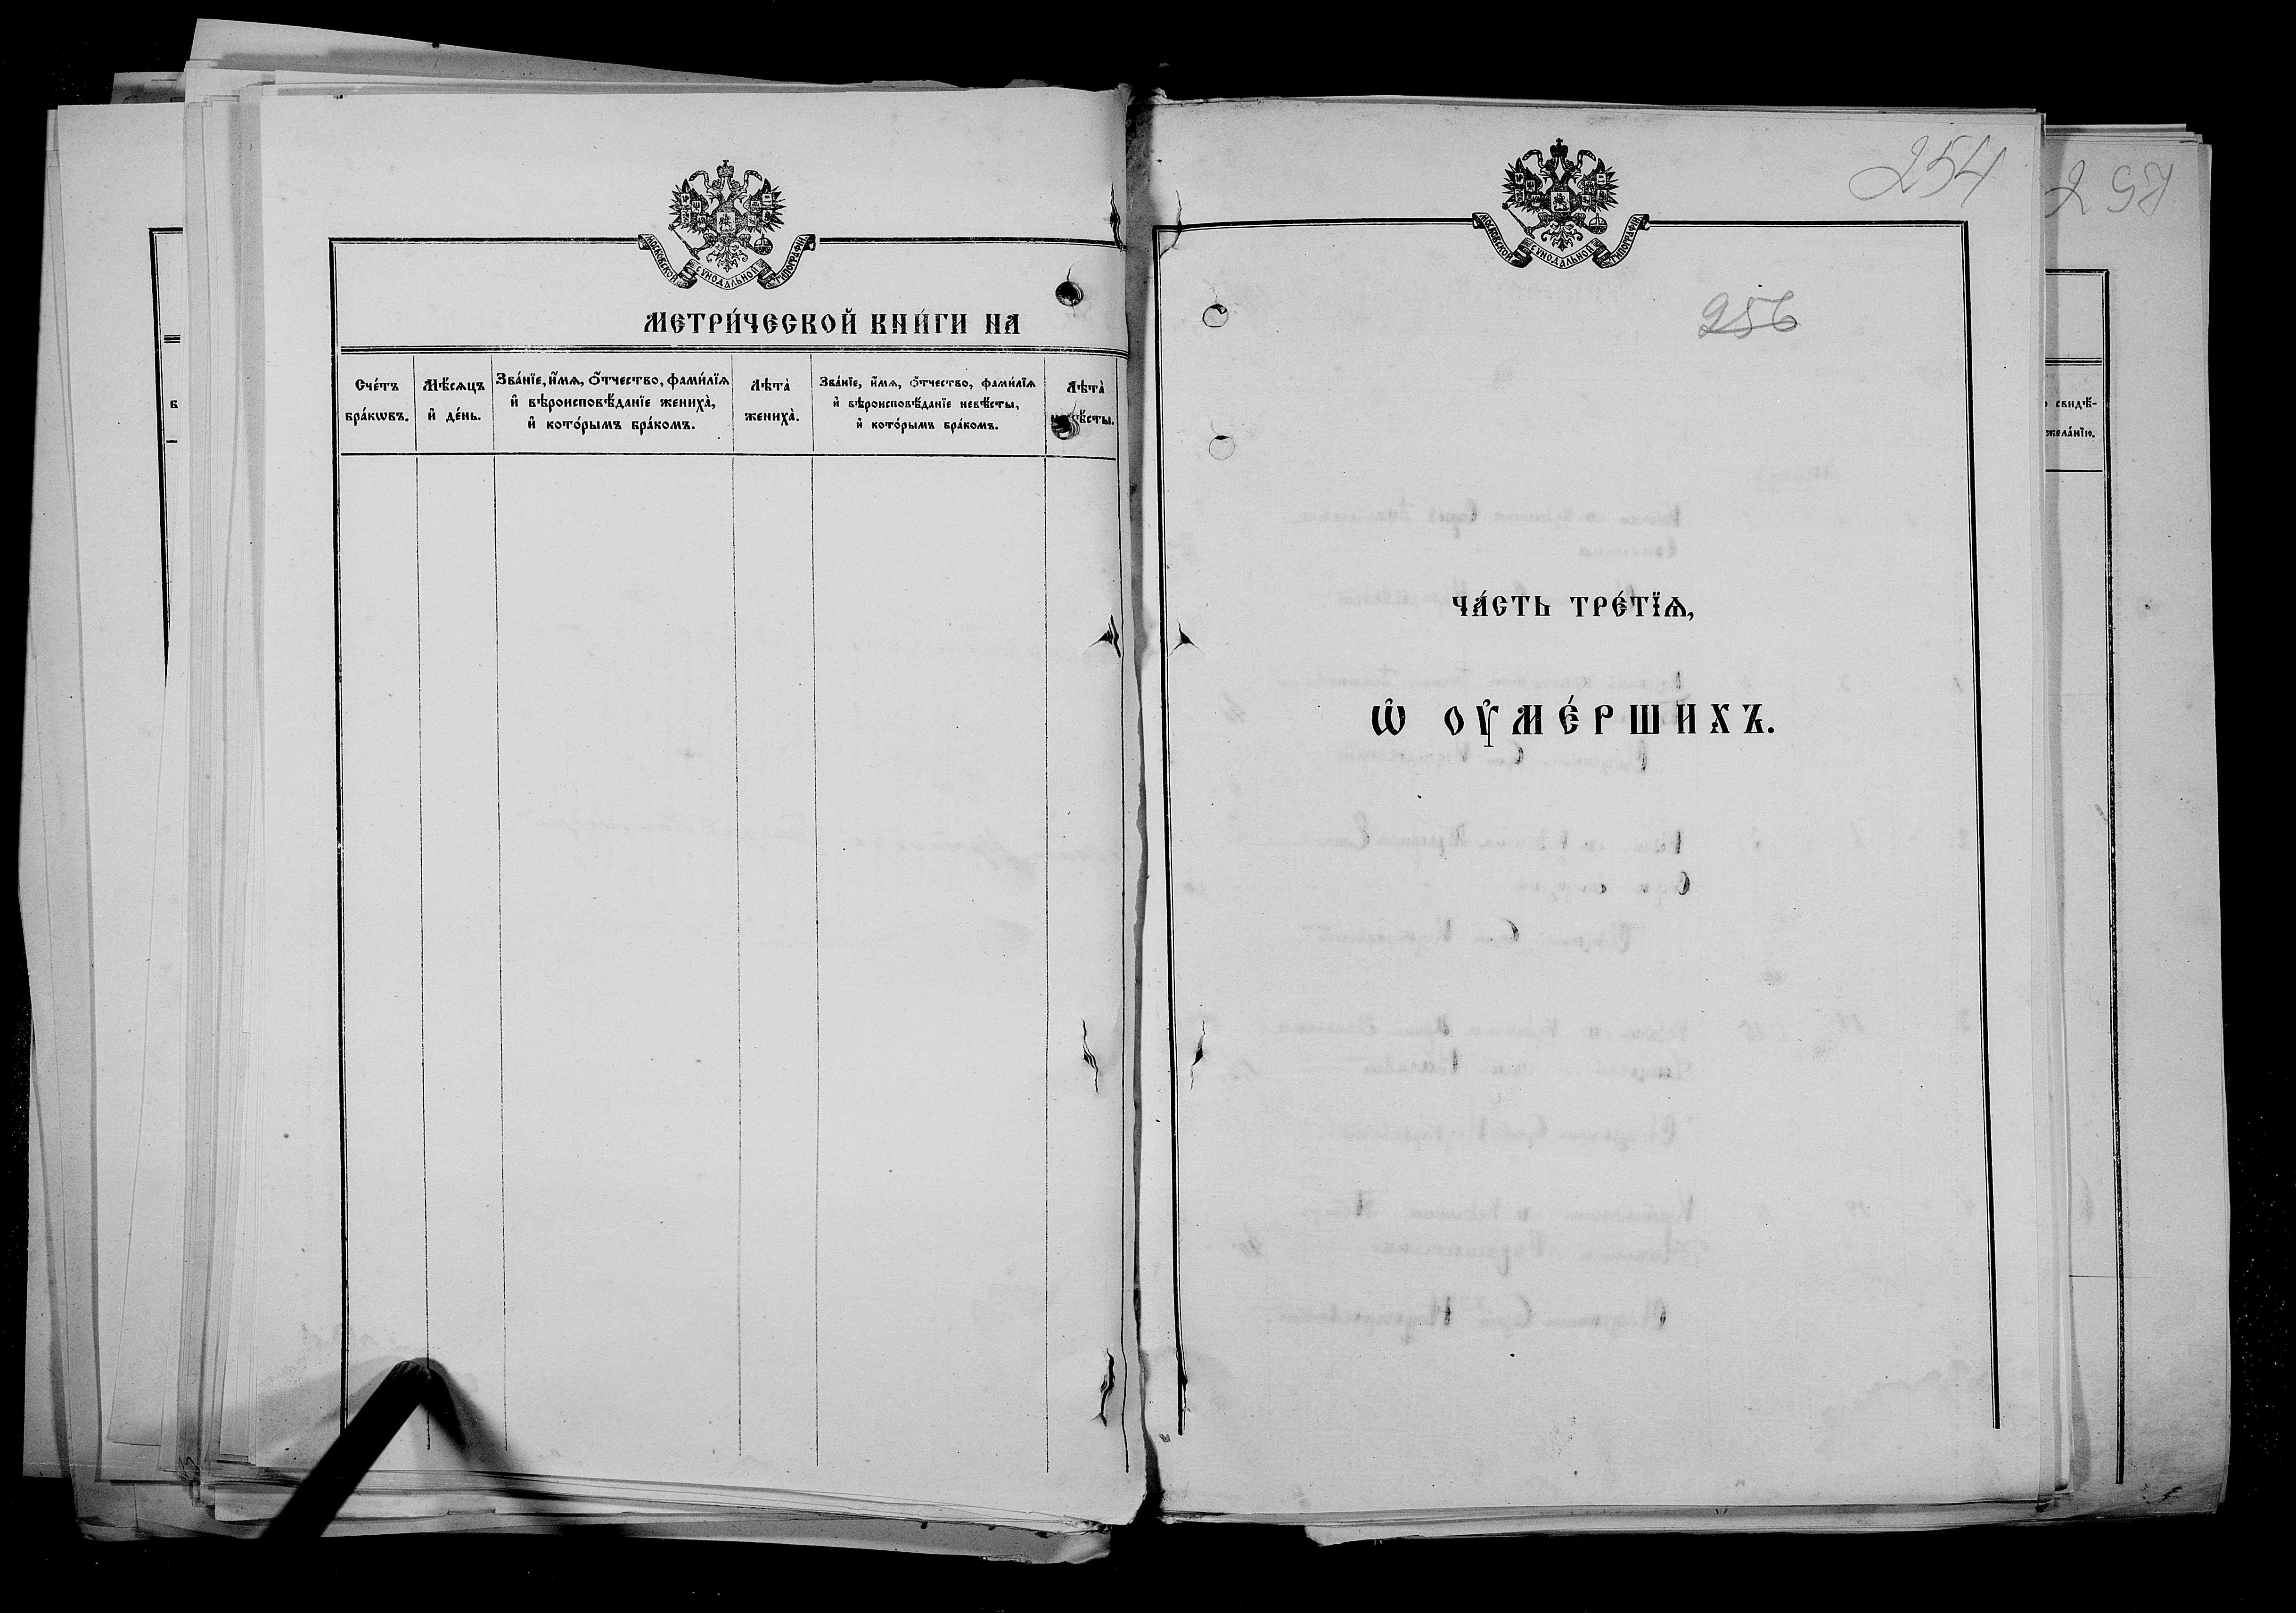 МОСКОВСКОЙ СѴНОДАЛЬНОЙ ТИПОГРАФІИ
МЕТРИ́ЧЕСКОЙ КНИ́ГИ НА
Сче́тъ
бра́кѡвъ.
Мѣ́сѧцъ
и҆ де́нь.
Зва́нїе, и҆́мѧ, ѻ҆́тчество, фами́лїѧ
и҆ вѣроисповѣ́данїе жениха̀,
и҆ кото́рымъ бра́комъ.
Лѣта̀
жениха̀.
Зва́нїе, и҆́мѧ, ѻ҆́тчество, фами́лїѧ
и҆ вѣроисповѣ́данїе невѣ́сты,
и҆ кото́рымъ бра́комъ.
Лѣта̀
невѣ́сты.
254
МОСКОВСКОЙ СѴНОДАЛЬНОЙ ТИПОГРАФІИ
256
ЧА́СТЬ ТРЕ́ТЇѦ,
Ѡ҆ ОУ҆МЕ́РШИХЪ.
257
свидѣ́-
жела́нїю.